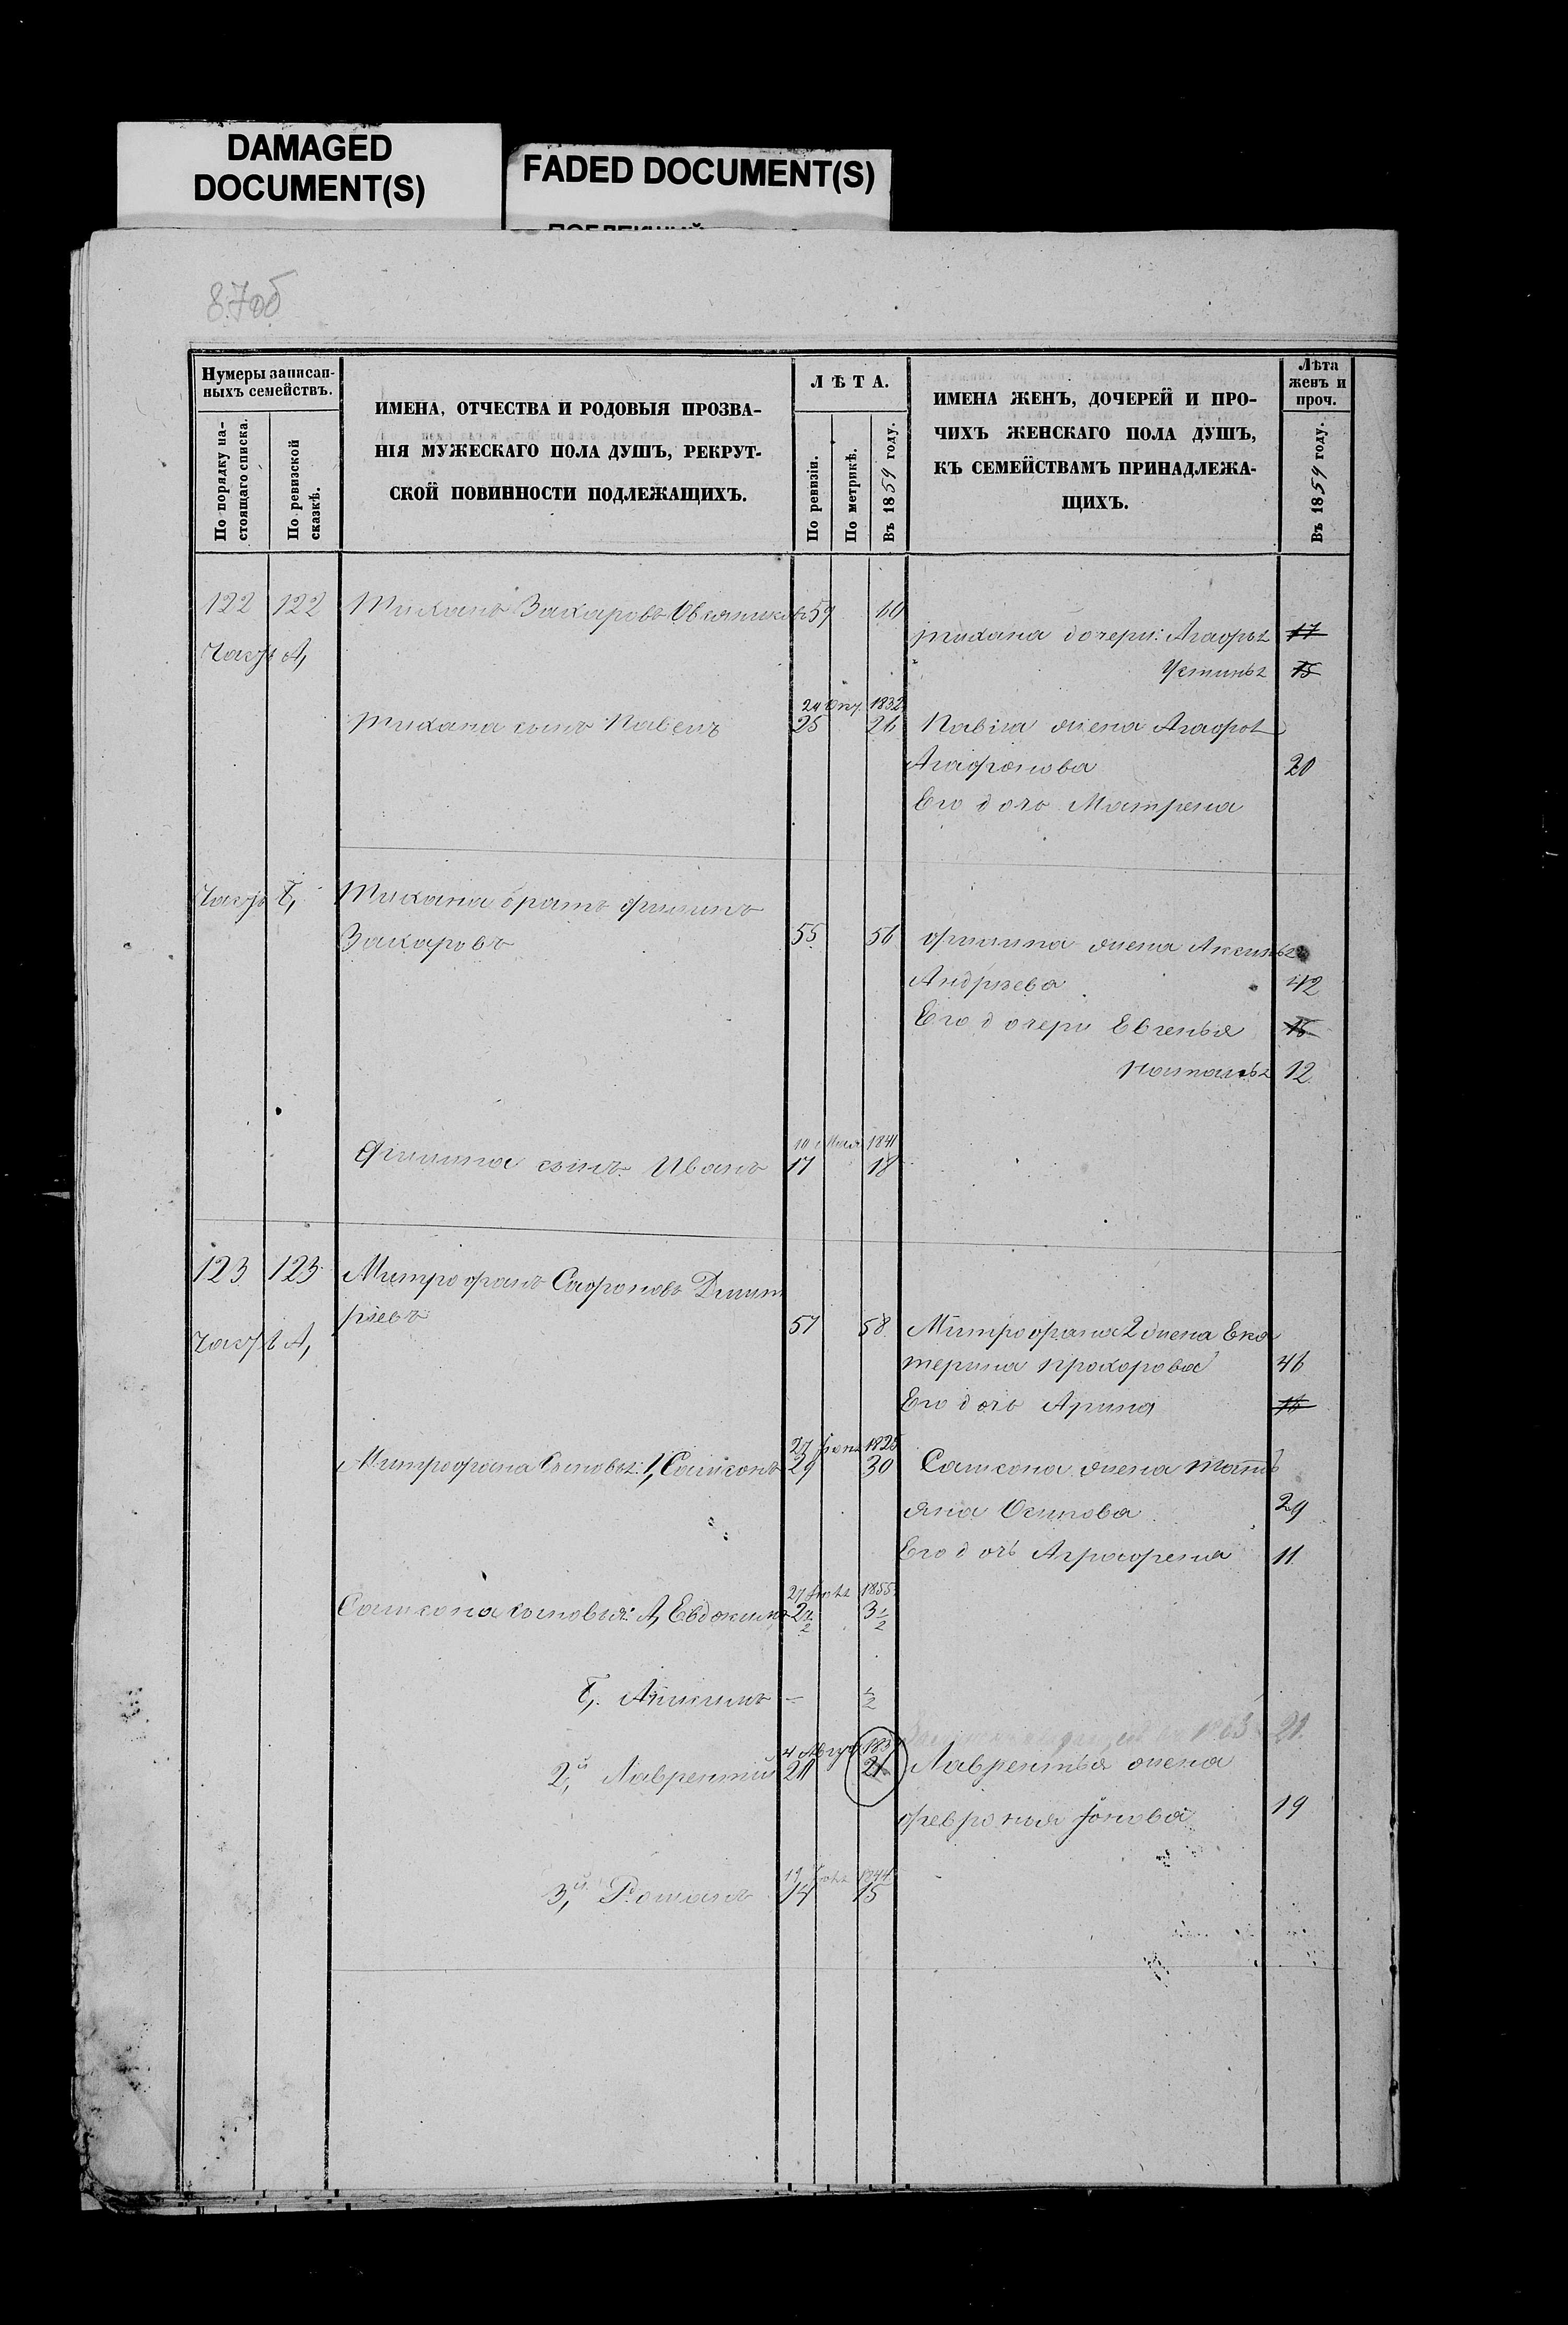 DAMAGED
DOCUMENT(S)
FADED DOCUMENT(S)
87об
Нумеры записан-
ныхъ семействъ.
По порядку на-
стоящаго списка.
По ревизской
сказкѣ.
ИМЕНА, ОТЧЕСТВА И РОДОВЫЯ ПРОЗВА-
НІЯ МУЖЕСКАГО ПОЛА ДУШЪ, РЕКРУТ-
СКОЙ ПОВИННОСТИ ПОДЛЕЖАЩИХЪ.
ЛѢТА.
По ревизіи.
По метрикѣ.
Въ 1859 году.
ИМЕНА ЖЕНЪ, ДОЧЕРЕЙ И ПРО-
ЧИХЪ ЖЕНСКАГО ПОЛА ДУШЪ,
КЪ СЕМЕЙСТВАМЪ ПРИНАДЛЕЖА-
ЩИХЪ.
Лѣта
женъ и
проч.
Въ 1859 году.
122 122 Тиханъ Захаровъ Овсяниковъ 59 60
Тихана дочери: Агафья 17
Часть А,
Устинья 15
1832
Тихана сынъ Павелъ 25 26 Павла жена Агафья
Агафонова 20
Его дочь Матрена
Часть Б, Тихана братъ Филипъ
Захаровъ 55 56 Филипа жена Аксинья
Андрѣева 42
Его дочери Евгенья 16
Наталья 12
10 Мая 1841
Филипа сынъ Иванъ 17 18
123 123 Митрофанъ Сафоновъ Димит
ріевъ 57 58 Митрофана 2 жена Ека
Часть А,
терина Прохорова 46
Его дочь Арина 16
27 Іюня 182
Митрофана Сыновья: 1, Самсонъ 29 30 Самсона жена Тать
яна Осипова 29
Его дочь Аграфена 11
27 1855
Самсона сыновья: А, Евдокимъ 2 1/2 3 1/2
Б, - 1/2
1863 21
4 Авгус 183
2й, Лаврентій 20 21 Лаврентья жена
Февронія Іонова 19
19 1844
3й, Романъ 14 15